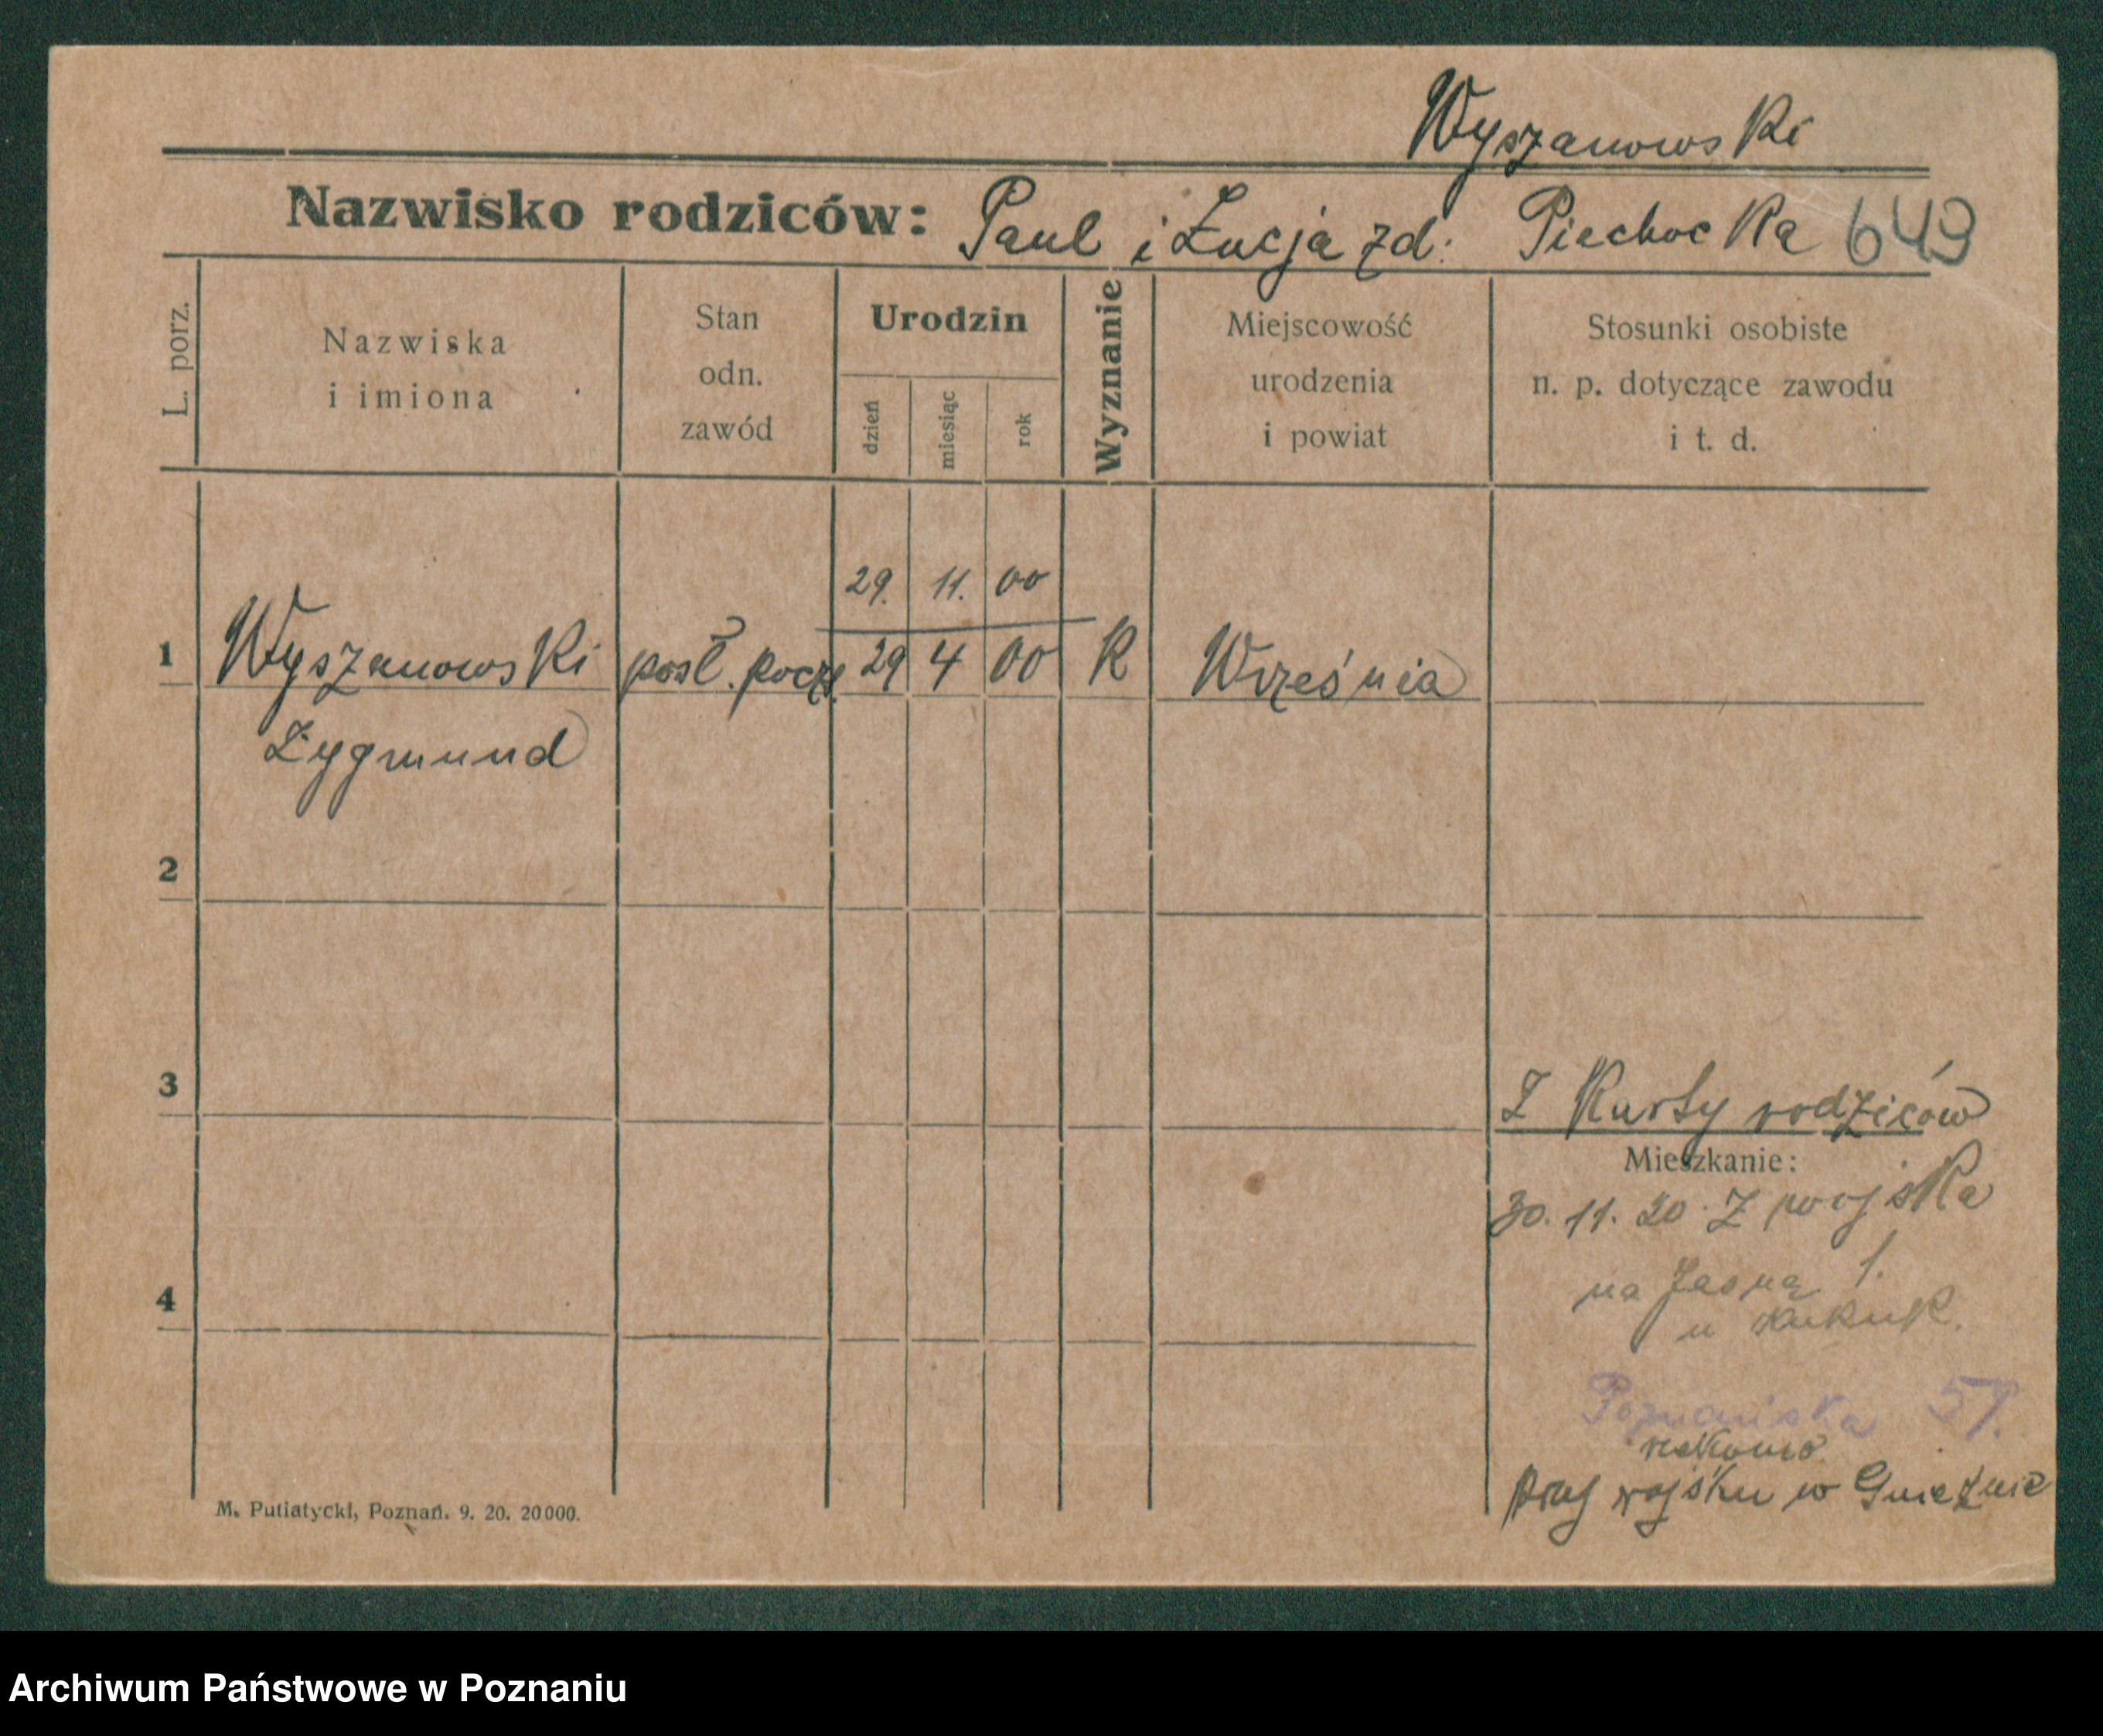 Wyszanowski
Nazwisko rodziców: Paul i Łucja zd. Piechocka 649
L. porz.
Nazwiska
i imiona
Stan
odn.
zawód
Urodzin
dzień
miesiąc
rok
Wyznanie
Miejscowość
urodzenia
i powiat
Stosunki osobiste
n. p. dotyczące zawodu
i t. d.
29. 11. 00
1 Wyszanowski posł. poczt. 29 4 00 K Września
Zygmund
2
3
Z Karty rodziców
Mieszkanie:
30. 11. 20. Z wojska
4
na Jasną 1.
u
Poznańska 57.
rekomo
przy wojsku w Gnieźnie
M. Putiatycki, Poznań. 9. 20. 20000.
Archiwum Państwowe w Poznaniu